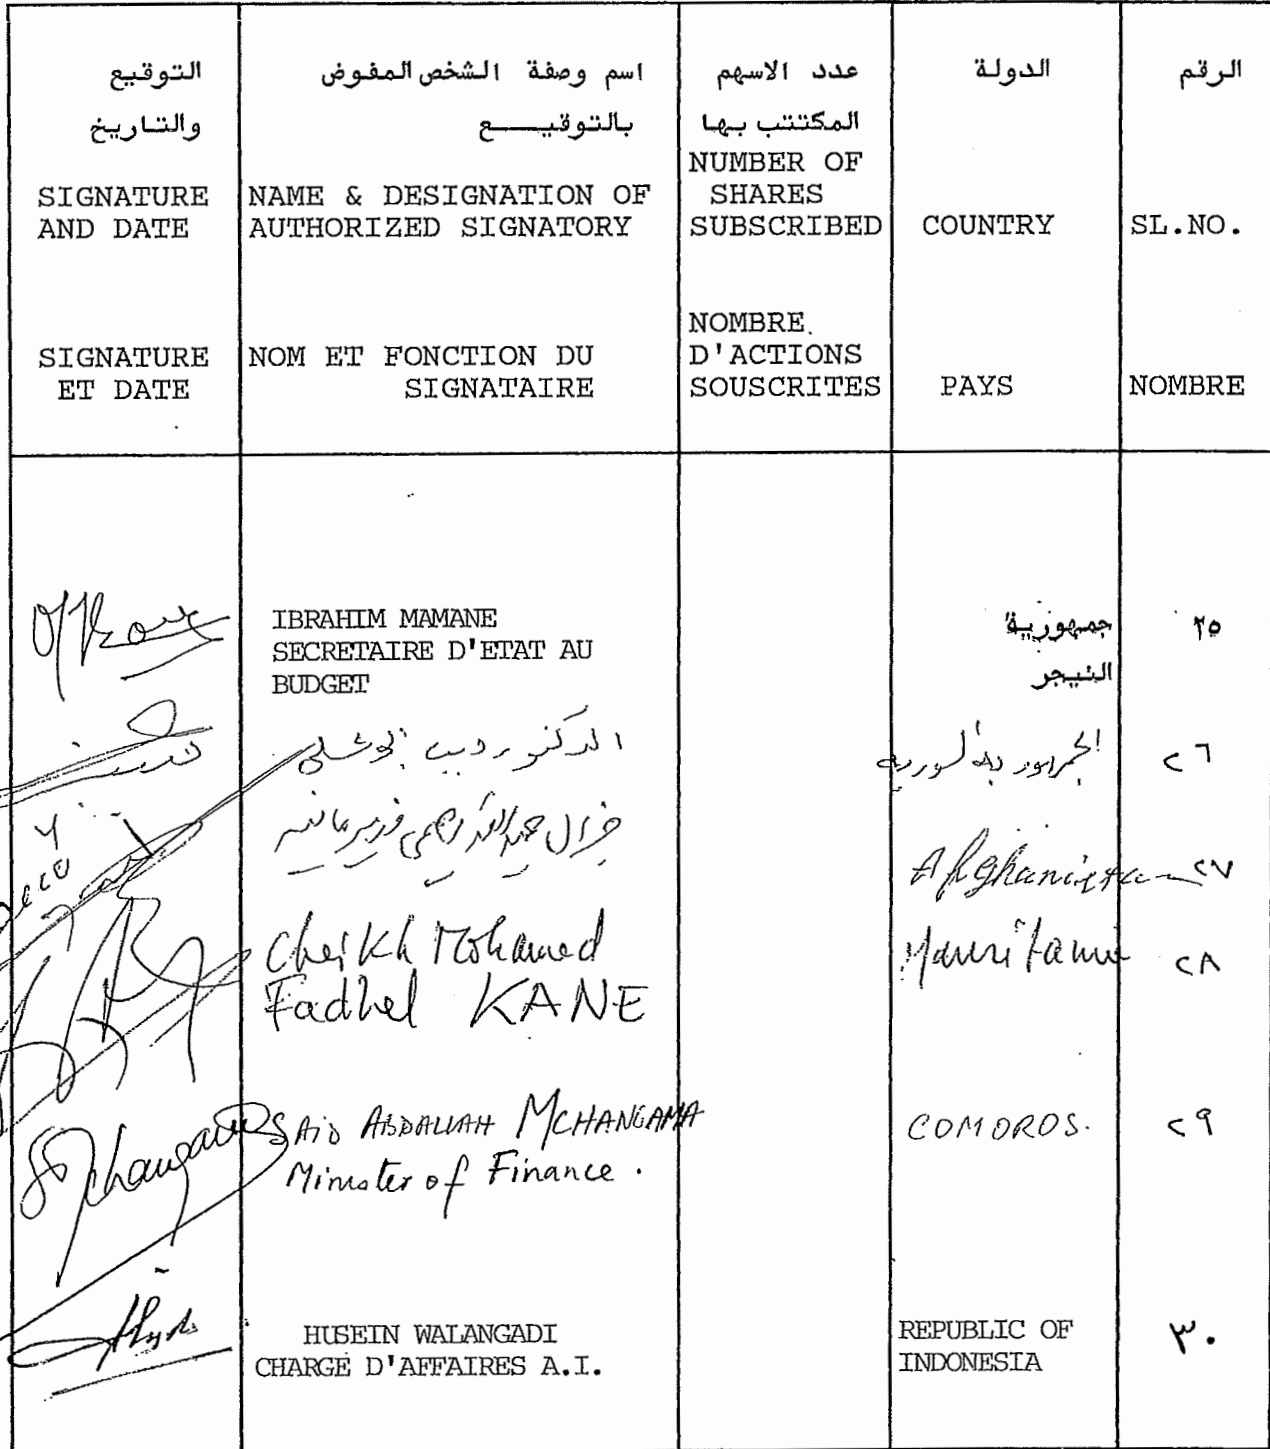 التوقيع
والتاريخ
SIGNATURE
AND DATE
SIGNATURE
ET DATE
اسم وصفة الشخص المفوض
بالتوقيــــع
NAME & DESIGNATION OF
AUTHORIZED SIGNATORY
NOM ET FONCTION DU
SIGNATAIRE
عدد الاسهم
المكتتب بها
NUMBER OF
SHARES
SUBSCRIBED
NOMBRE
D'ACTIONS
SOUSCRITES
الدولة
COUNTRY
PAYS
الرقم
SL.NO.
NOMBRE
IBRAHIM MAMANE
SECRETAIRE D'ETAT AU
BUDGET
جمهورية
النيجر
٢٥
الدكتور
الجمهورية السورية
٢٦
جنرال
Afghanistan
٢٧
Cheikh Mohamed
Fadhel KANE
Mauritania
٢٨
SAID ABDALLAH MCHANGAMA
Minister of Finance.
COMOROS.
٢٩
HUSEIN WALANGADI
CHARGE D'AFFAIRES A.I.
REPUBLIC OF
INDONESIA
٣٠